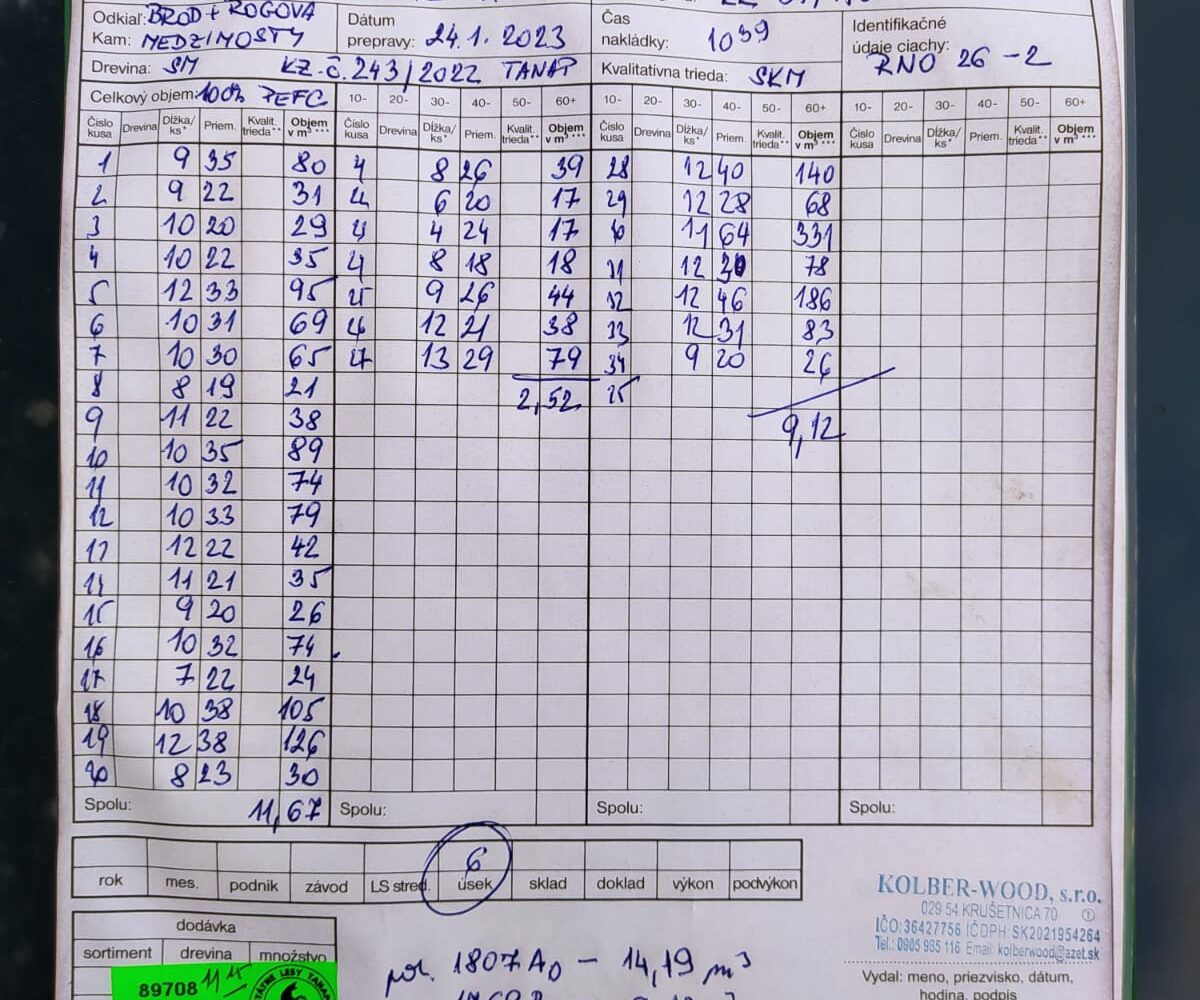 Odkiaľ: BROD + ROGOVA
Kam: MEDZIMOSTY
Dátum prepravy: 24.1. 2023
Čas nakládky: 10³⁹
Identifikačné údaje ciachy: RNO 26 - 2
Drevina: SM KZ.č. 243/2022 TANAP
Kvalitatívna trieda: SKM
Celkový objem: 100% PEFC 10- 20- 30- 40- 50- 60+ 10- 20- 30- 40- 50- 60+ 10- 20- 30- 40- 50- 60+
Číslo kusa Drevina Dĺžka/ks* Priem. Kvalit. trieda** Objem v m³*** Číslo kusa Drevina Dĺžka/ks* Priem. Kvalit. trieda** Objem v m³*** Číslo kusa Drevina Dĺžka/ks* Priem. Kvalit. trieda** Objem v m³*** Číslo kusa Drevina Dĺžka/ks* Priem. Kvalit. trieda** Objem v m³***
1 9 35 80 8 26 39 28 12 40 140
2 9 22 31 6 20 17 29 12 28 68
3 10 20 29 4 24 17 11 64 331
4 10 22 35 8 18 18 31 12 30 78
5 12 33 95 9 26 44 32 12 46 186
6 10 31 69 12 21 38 33 12 31 83
7 10 30 65 13 29 79 34 9 20 26
8 8 19 21 2,52
9 11 22 38 9,12
10 10 35 89
11 10 32 74
12 10 33 79
13 12 22 42
14 11 21 35
15 9 20 26
16 10 32 74
17 7 22 24
18 10 38 105
19 12 38 126
20 8 23 30
Spolu: 11,67 Spolu: Spolu: Spolu:
6
rok mes. podnik závod LS stred. úsek sklad doklad výkon podvýkon
KOLBER-WOOD, s.r.o.
029 54 KRUŠETNICA 70
IČO: 36427756 IČDPH: SK2021954264
Tel.: 0905 985 116 Email: kolberwood@azet.sk
dodávka
sortiment drevina množstvo
89708
por. 1807 A0 - 14,19 m³
Vydal: meno, priezvisko, dátum,
hodina, podpis